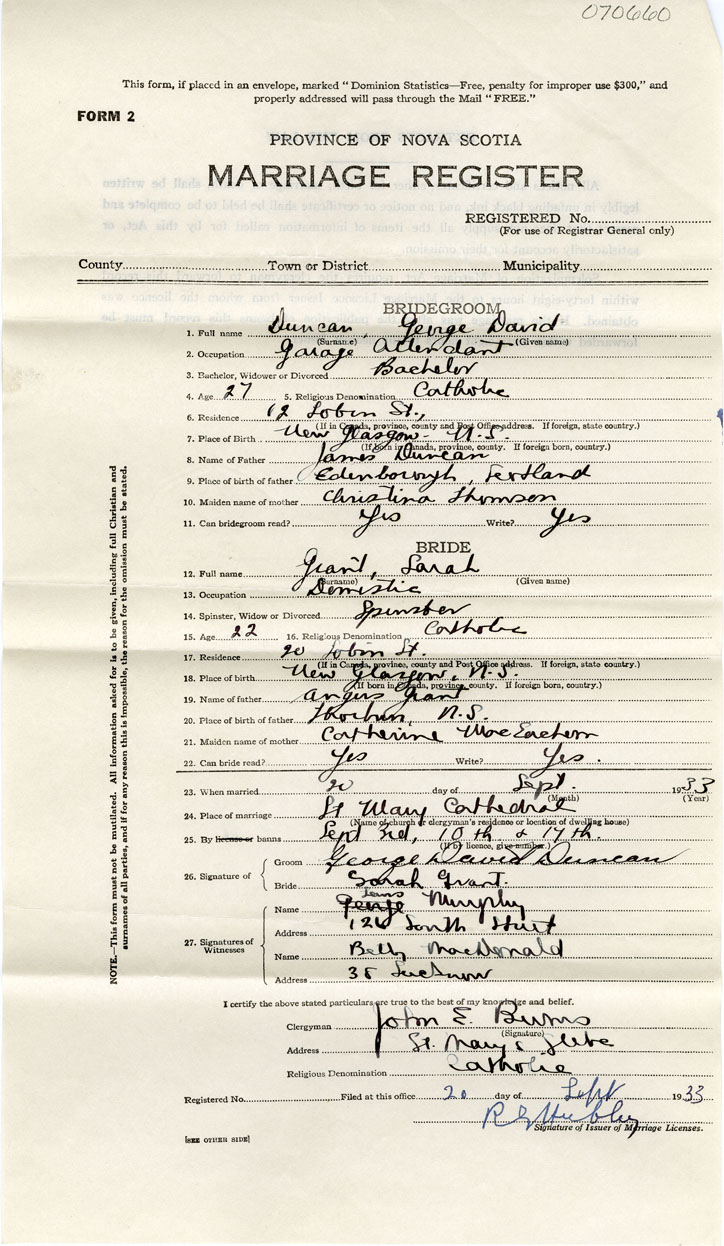 070660
This form, if placed in an envelope, marked " Dominion Statistics—Free, penalty for improper use $300," and
properly addressed will pass through the Mail " FREE."
FORM 2
PROVINCE OF NOVA SCOTIA
MARRIAGE REGISTER
REGISTERED No.
(For use of Registrar General only)
County Town or District Municipality
BRIDEGROOM
1. Full name Duncan, George David
(Surname) (Given name)
2. Occupation Garage Attendant
3. Bachelor, Widower or Divorced Bachelor
4. Age 27 5. Religious Denomination Catholic
6. Residence 12 Tobin St.,
(If in Canada, province, county and Post Office address. If foreign, state country.)
7. Place of Birth New Glasgow - N.S.
(If born in Canada, province, county. If foreign born, country.)
8. Name of Father James Duncan
9. Place of birth of father Edenborough, Scotland
10. Maiden name of mother Christina Thomson
11. Can bridegroom read? Yes Write? Yes
BRIDE
12. Full name Grant, Sarah
(Surname) (Given name)
13. Occupation Domestic
14. Spinster, Widow or Divorced Spinster
15. Age 22 16. Religious Denomination Catholic
17. Residence 20 Tobin St.
(If in Canada, province, county and Post Office address. If foreign, state country.)
18. Place of birth New Glasgow, N.S.
(If born in Canada, province, county. If foreign born, country.)
19. Name of father Angus Grant
20. Place of birth of father Thorburn, N.S.
21. Maiden name of mother Catherine MacEachern
22. Can bride read? Yes Write? Yes.
23. When married 20 day of Sept. 1933
(Month) (Year)
24. Place of marriage St Mary Cathedral
(Name of church or clergyman's residence or location of dwelling house)
25. By license or banns Sept 3rd, 10th & 17th.
(If by licence, give number.)
26. Signature of
Groom George David Duncan
Bride Sarah Grant.
27. Signatures of Witnesses
Name George Murphy
Address 126 South Street
Name Betty MacDonald
Address 38 Lucknow
I certify the above stated particulars are true to the best of my knowledge and belief.
Clergyman John E. Burns
(Signature)
Address St. Mary's Glebe
Religious Denomination Catholic
Registered No. Filed at this office 20 day of Sept 1933
Signature of Issuer of Marriage Licenses.
[SEE OTHER SIDE]
NOTE.—This form must not be mutilated. All information asked for is to be given, including full Christian and
surnames of all parties, and if for any reason this is impossible, the reason for the omission must be stated.